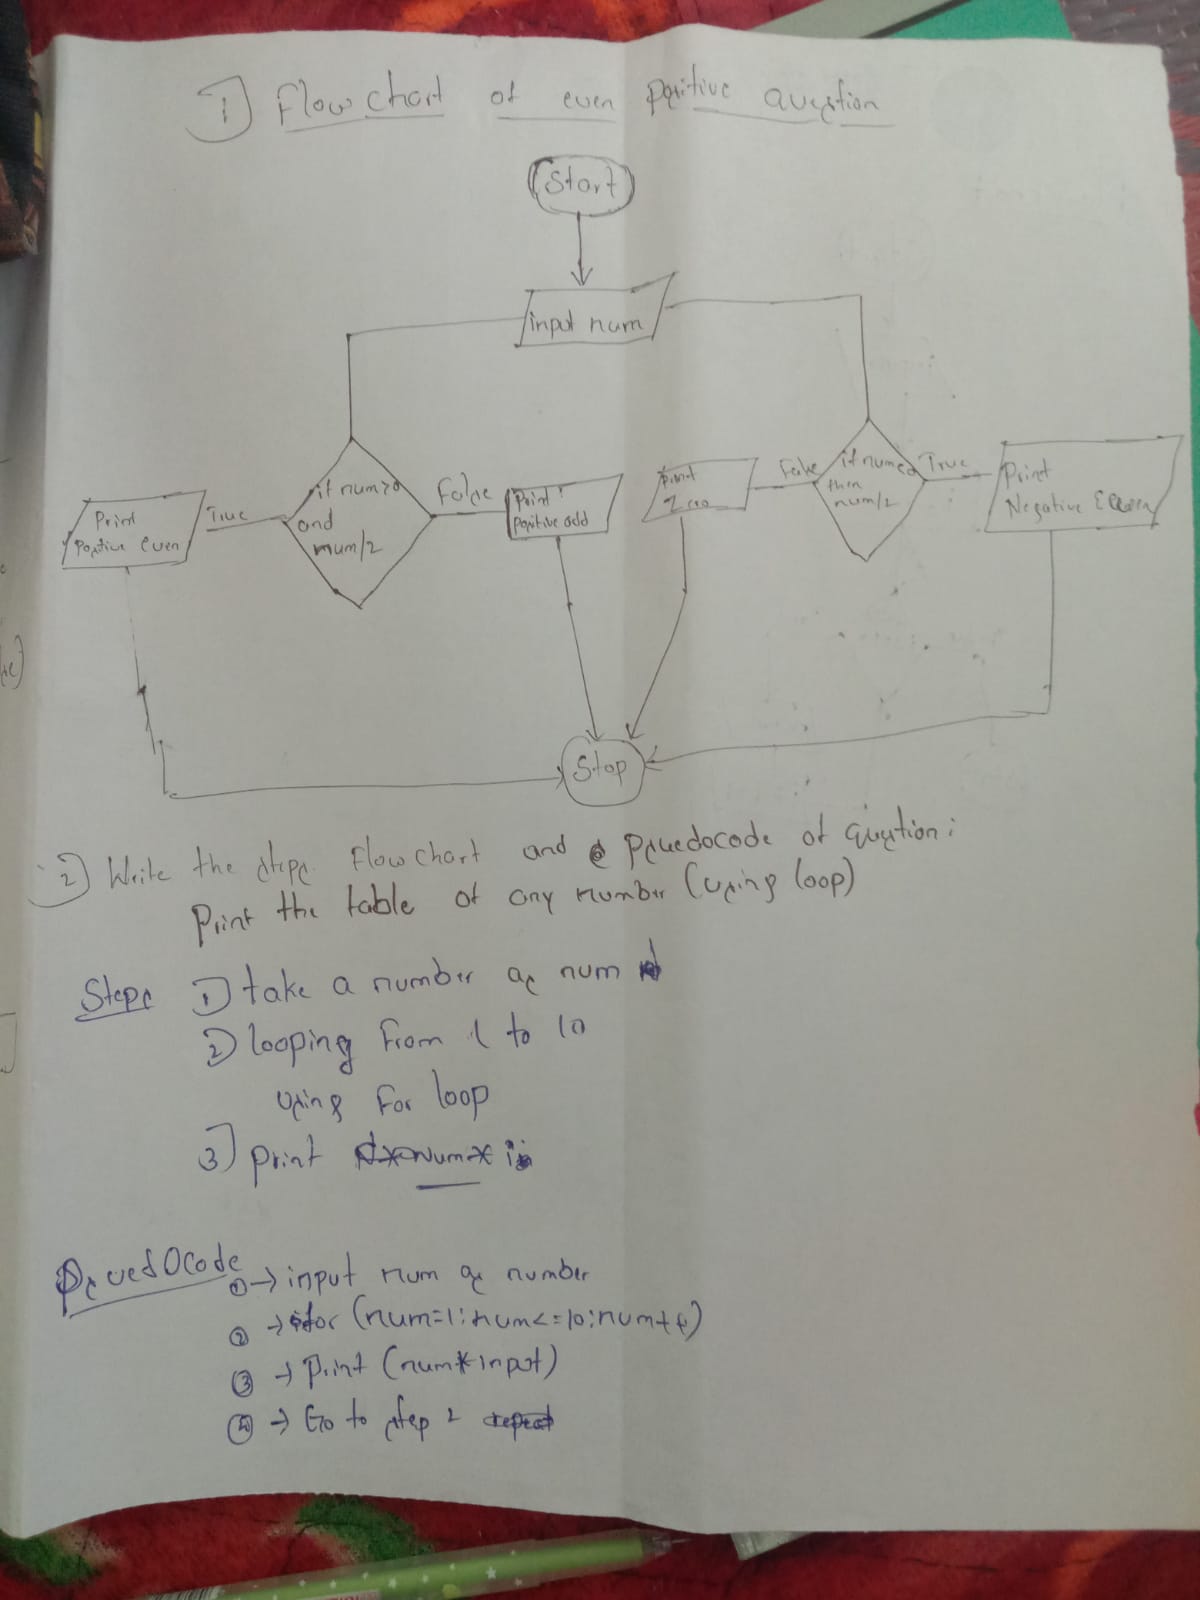 1) Flow chart of even positive question
Start
input num
if num>0
and
num/2
True
Print
Positive Even
False
Print
Positive odd
if num<0
then
num/2
False
Print
Zero
True
Print
Negative
Stop
2) Write the steps Flow chart and Pseudocode of question:
Print the table of any number (using loop)
Steps 1) take a number as num
2) looping from 1 to 10
using for loop
3) print num* i
Pseudocode
① → input num as number
② → for (num=1; num<=10; num++)
③ → Print (num*input)
④ → Go to step 2